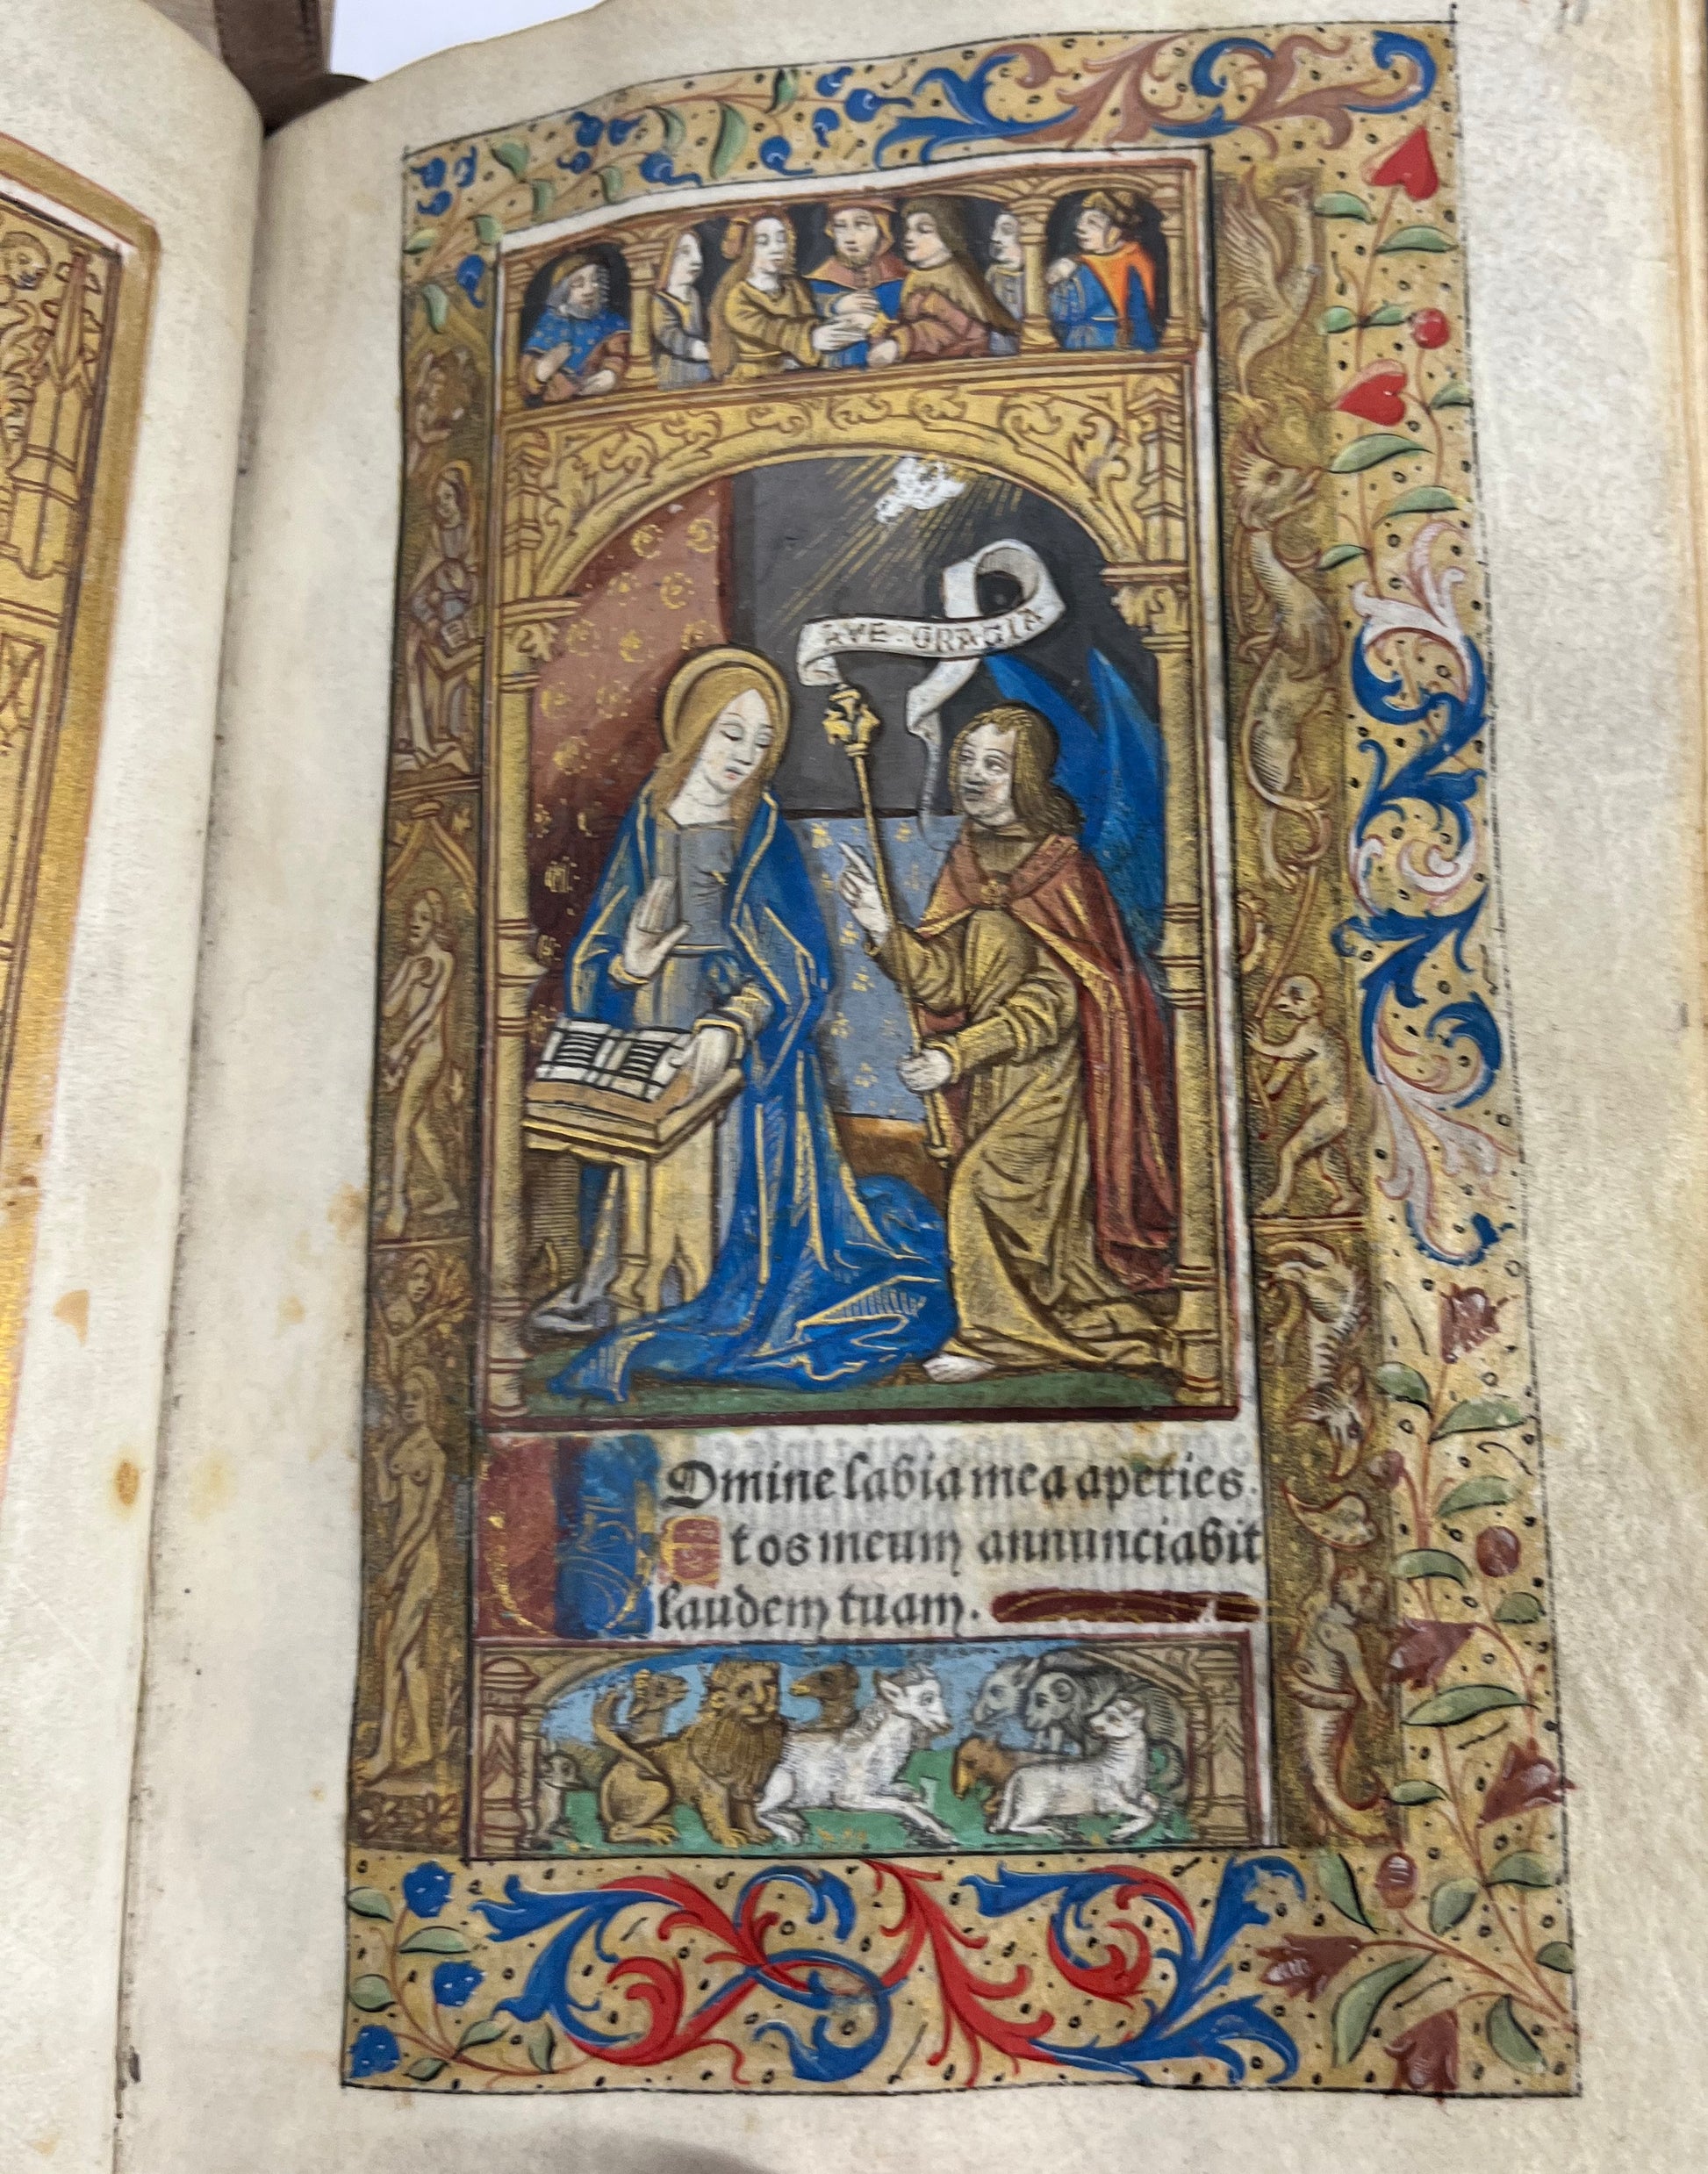 AVE · GRACIA
DOmine labia mea aperies.
Et os meum annunciabit
laudem tuam.